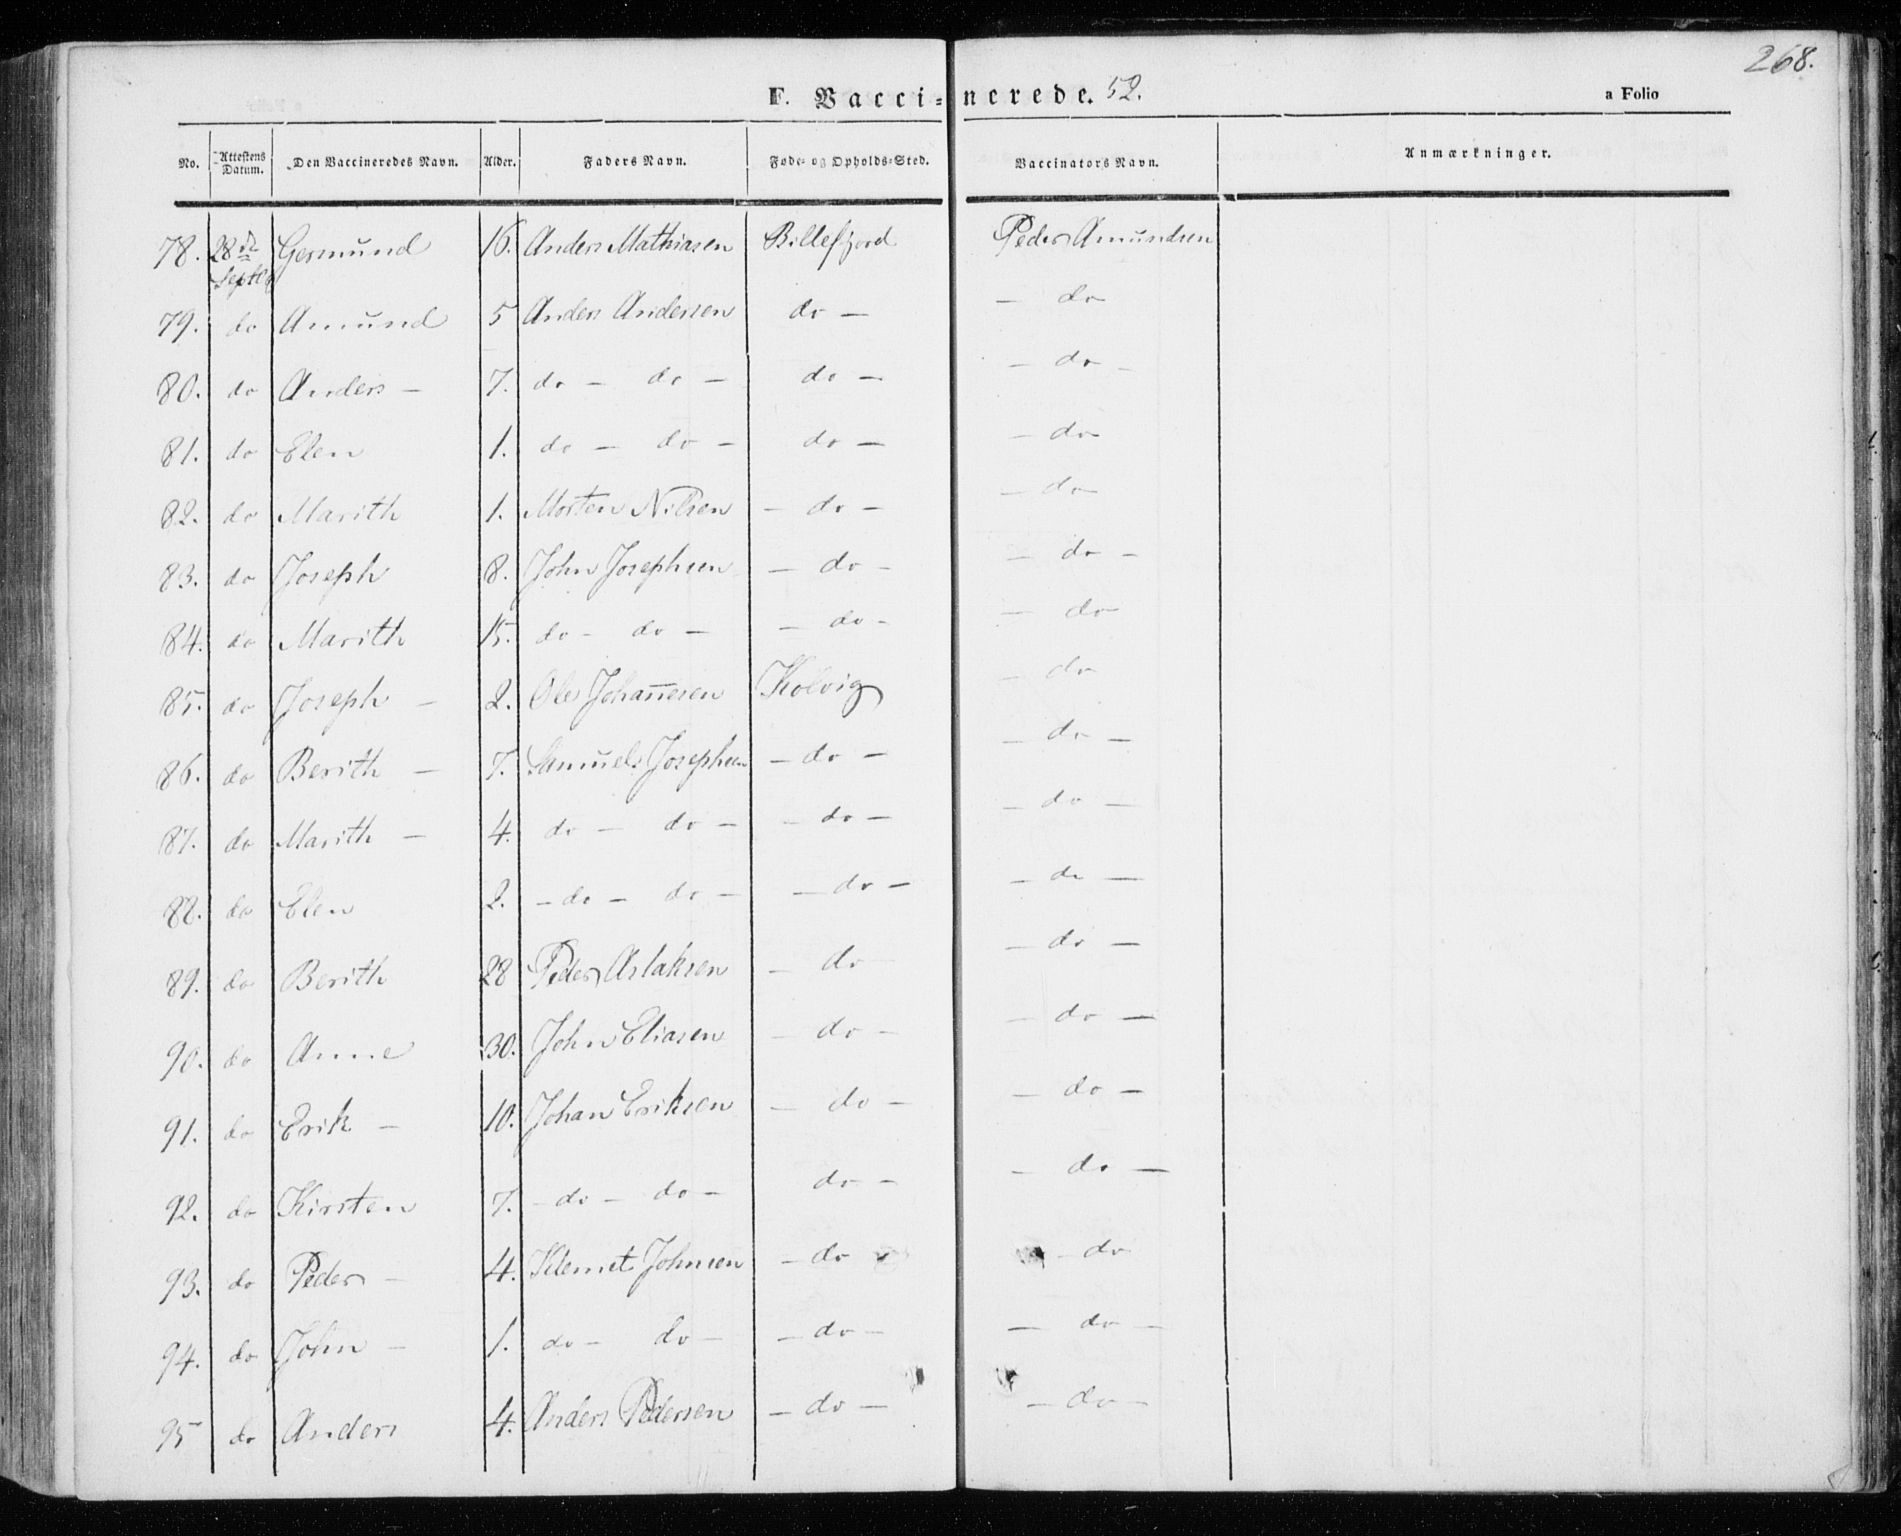 268.
F. Vacci-nerede. 52. a Folio
No. Attestens Datum. Den Vaccineredes Navn. Alder. Faders Navn. Føde- og Opholds-Sted. Vaccinators Navn. Anmærkninger.
78. 28de Septb Germund 16. Anders Mathiasen Billefjord Peder Amundsen
79. do Amund 5 Anders Andersen do — — do
80. do Anders — 7. do — do — do — — do —
81. do Elen 1. do — do — do — — do
82. do Marith 1. Morten Nilsen — do — — do
83. do Joseph 8. John Josephsen — do — — do —
84. do Marith 15. do — do — — do — — do
85. do Joseph — 2. Ole Johan̅esen Kolvig — do
86. do Berith — 7. Samuel Josephsen — do — — do —
87. do Marith — 4. do — do — — do — — do —
88. do Elen 2. — do — do — — do — — do —
89. do Berith 28 Peder Aslaksen — do — do —
90. do Anne 30. John Eliasen — do — — do —
91. do Erik — 10. Johan Eriksen — do — — do —
92. do Kirsten 7. — do — do — do — — do —
93. do Peder — 4. Klemet Johnsen — do — do
94. do John — 1. do — do — — do — — do —
95 do Anders 4. Anders Pedersen — do — — do —